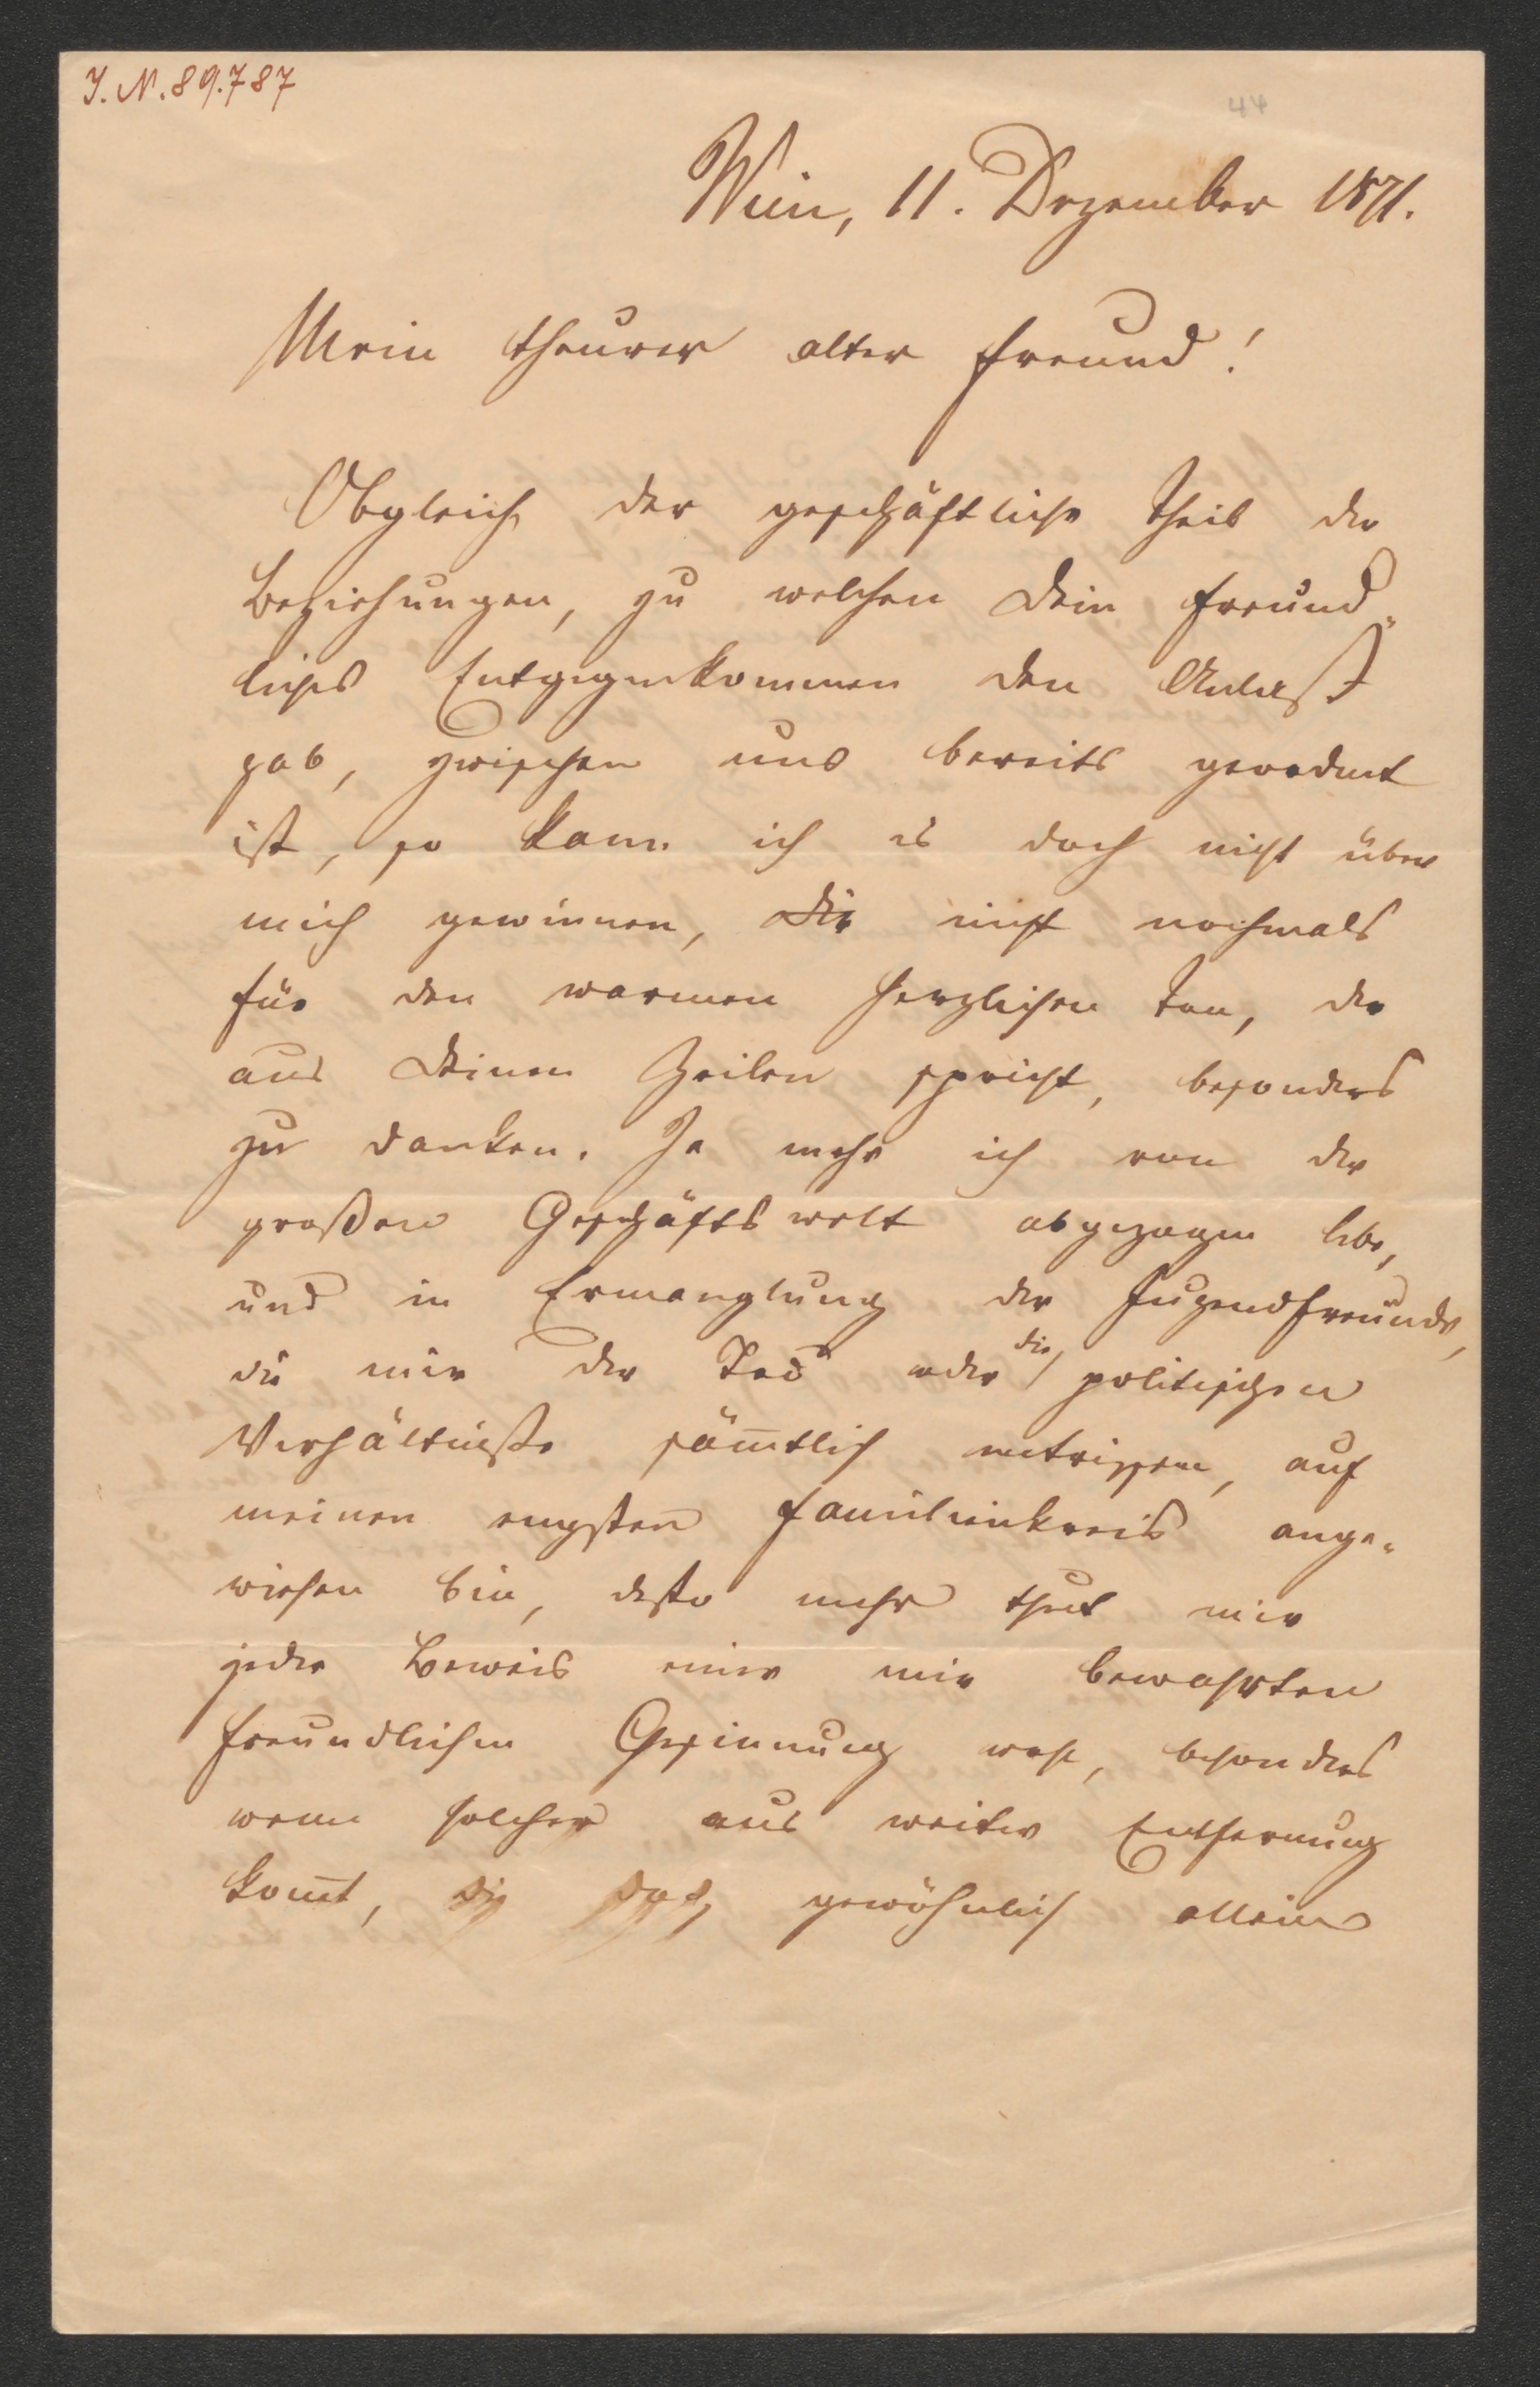 I. N. 89.787
44
Wien, 11. Dezember 1871.
Mein theurer alter Freund!
Obgleich der geschäftliche Theil der
Beziehungen, zu welchen Dein freund-
liches Entgegenkommen den Anlaß
gab, zwischen uns bereits geordnet
ist, so kann ich es doch nicht über
mich gewinnen, Dir nicht nochmals
für den warmen herzlichen Ton, der
aus Deinen Zeilen spricht, besonders
zu danken. Je mehr ich von der
großen Geschäftswelt abgezogen lebe,
und in Ermanglung der Jugendfreunde,
die mir der Tod oder die politischen
Verhältniße sämtlich entrissen, auf
meinen engsten Familienkreis ange-
wiesen bin, desto mehr thut mir
jeder Beweis einer mir bewahrten
freundlichen Gesinnung wohl, besonders
wenn solcher aus weiter Entfernung
komt, die doch gewöhnlich allein